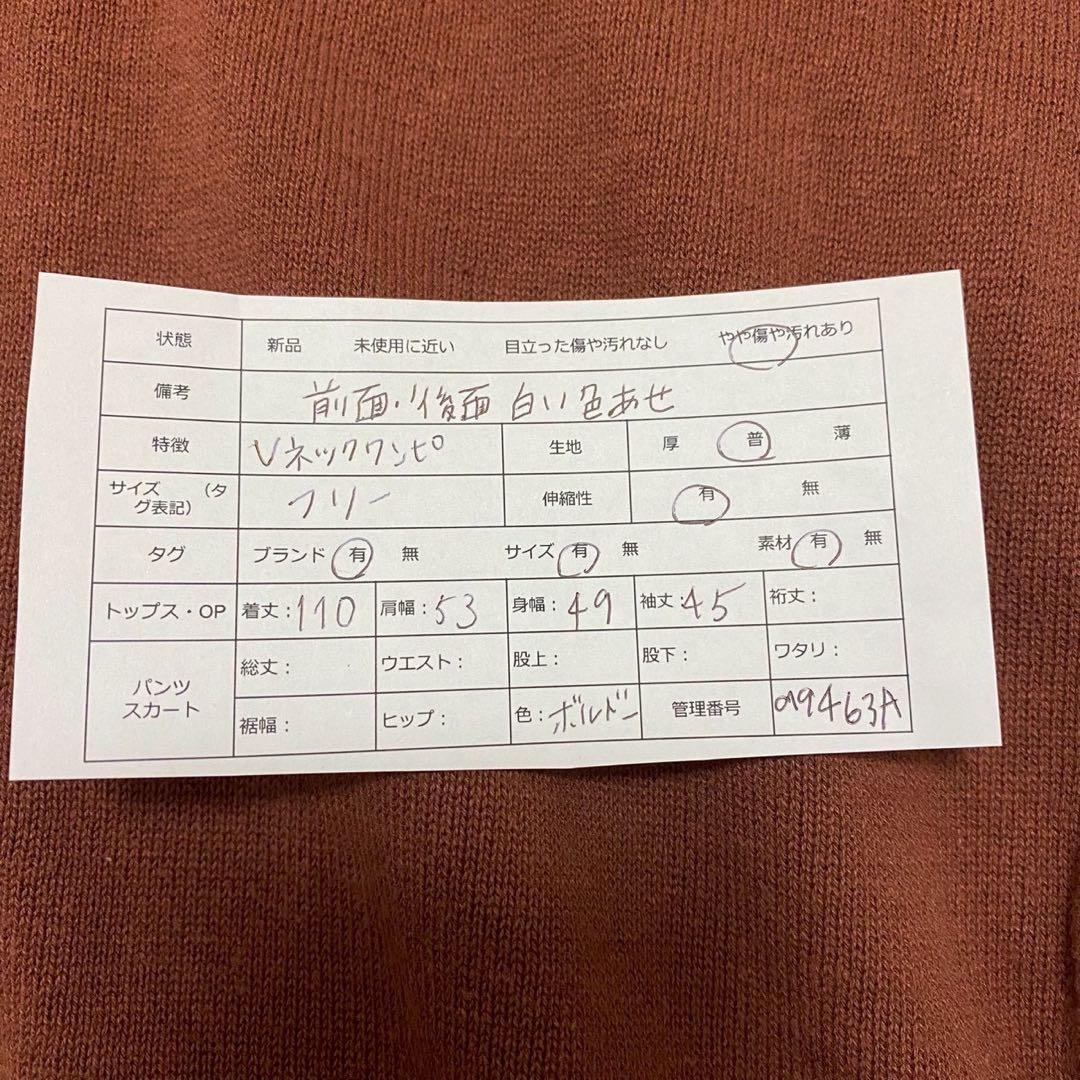 状態 新品 未使用に近い 目立った傷や汚れなし やや傷や汚れあり
備考 前面・後面 白い色あせ
特徴 Vネックワンピ 生地 厚 普 薄
サイズ （タ
グ表記） フリー 伸縮性 有 無
タグ ブランド 有 無 サイズ 有 無 素材 有 無
トップス・OP 着丈：110 肩幅：53 身幅：49 袖丈：45 裄丈：
パンツ
スカート
総丈： ウエスト： 股上： 股下： ワタリ：
裾幅： ヒップ： 色：ボルドー 管理番号 019463A